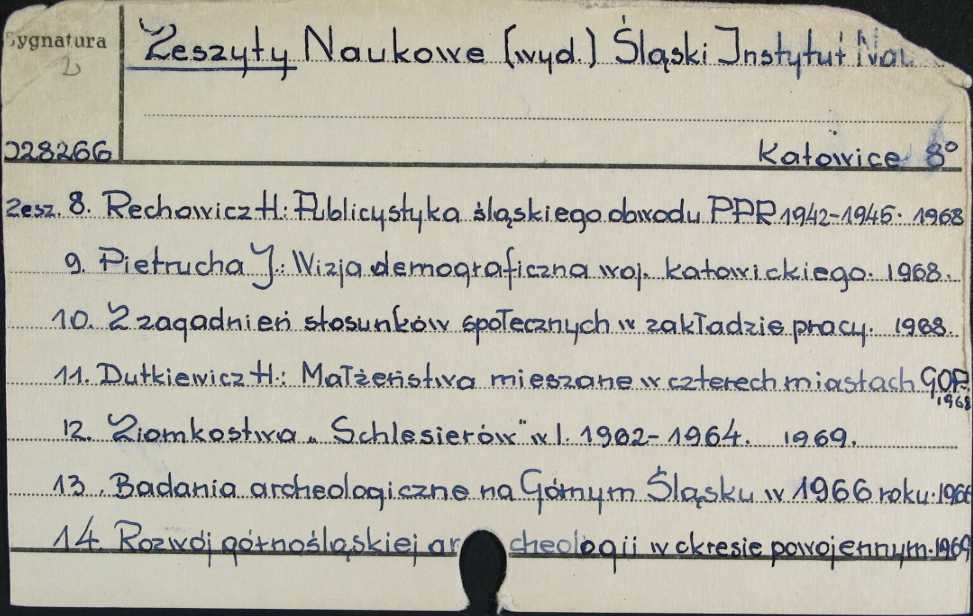 Sygnatura
Zeszyty Naukowe (wyd.) Śląski Instytut Nau
028266
Katowice 8°
Zesz. 8. Rechowicz H.: Publicystyka śląskiego obwodu PPR 1942-1945. 1968
9. Pietrucha J.: Wizja demograficzna woj. katowickiego. 1968.
10. Z zagadnień stosunków społecznych w zakładzie pracy. 1968.
11. Dutkiewicz H.: Małżeństwa mieszane w czterech miastach GOP. 1968
12. Ziomkostwa „Schlesierów" w l. 1962-1964. 1969.
13. Badania archeologiczne na Górnym Śląsku w 1966 roku. 1966
14. Rozwój górnośląskiej ar cheologii w okresie powojennym. 1969